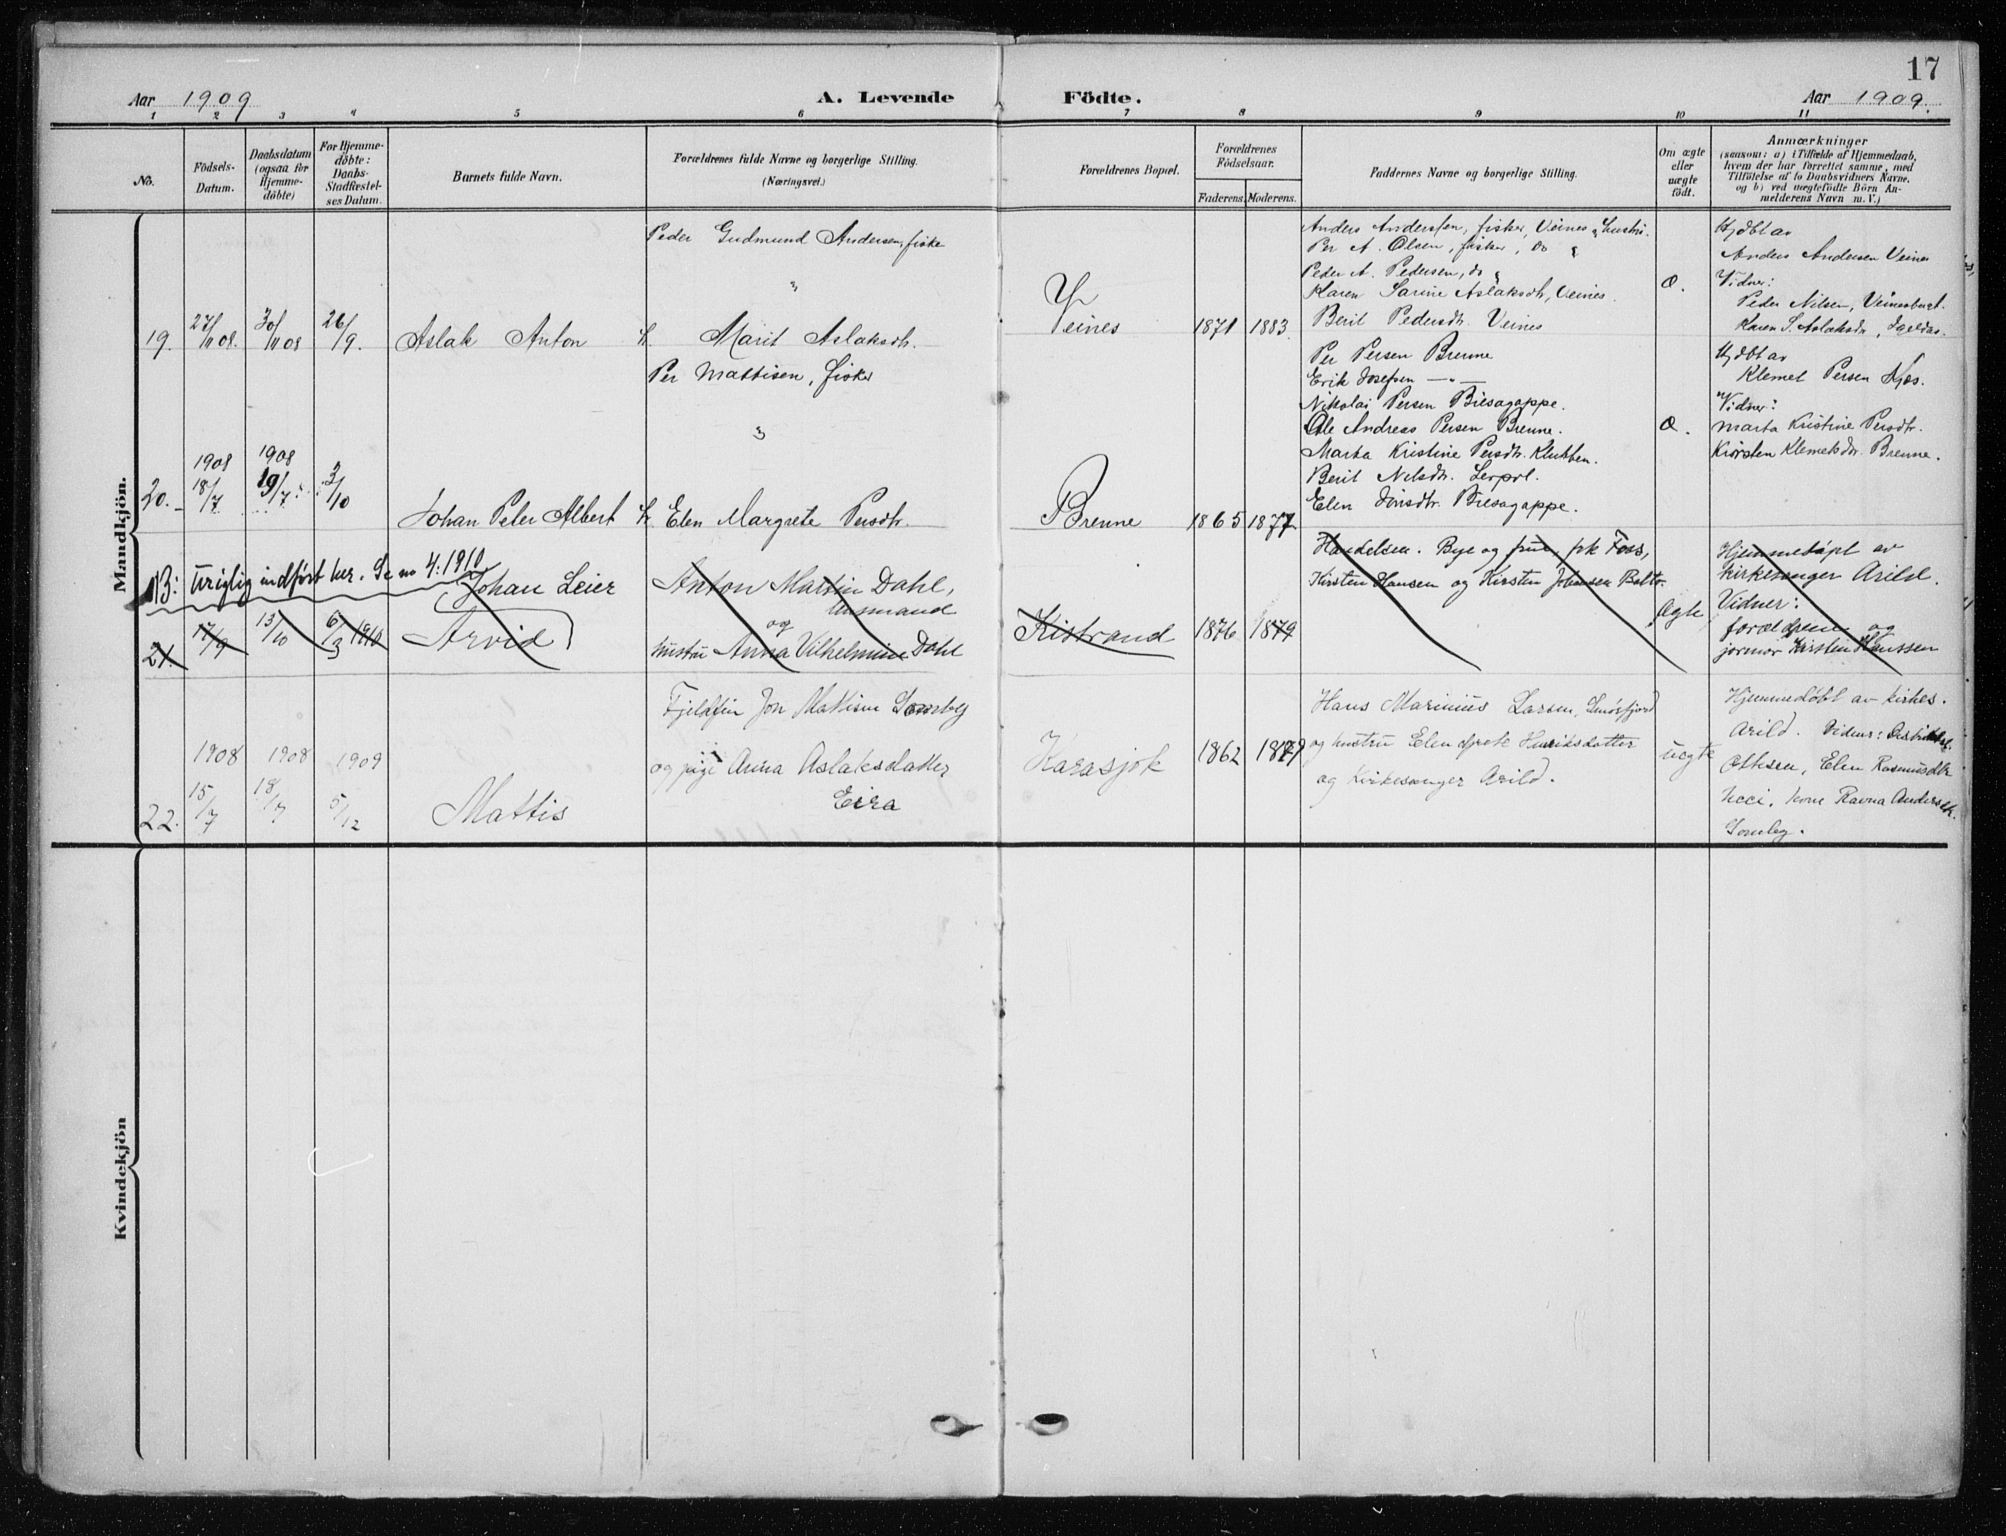 17
Aar 1909 A. Levende Födte. Aar 1909.
1 2 3 4 5 6 7 8 9 10 11
No.
Födsels-
Datum.
Daabsdatum
(ogsaa for
Hjemme-
döbte)
For Hjemme-
döbte:
Daabs-
Stadfæstel-
ses Datum.
Barnets fulde Navn.
Forældrenes fulde Navne og borgerlige Stilling.
(Næringsvei.)
Forældrenes Bopæl.
Forældrenes
Födselsaar.
Faderens. Moderens.
Faddernes Navne og borgerlige Stilling.
Om ægte
eller
uægte
født.
Anmærkninger
(saasom: a) i Tilfælde af Hjemmedaab,
hvem der har forrettet samme, med
Tilföielse af to Daabsvidners Navne,
og b) ved uægtefödte Börn An-
melderens Navn m. V.)
Mandkjön.
19.
27/11 08.
30/11 08
26/9.
Aslak Anton
Peder Gudmund Andersen, fisker
Marit Aslaksdtr.
Veines
1871
1883.
Anders Andersen, fisker, Veines
Per A. Olsen, fisker, do
Peder A. Pedersen, do
Karen Sarine Aslaksdtr, Veines.
Berit Pedersdtr. Veines
Æ.
Hjdbt av
Anders Andersen Veines
Vidner:
Peder Nilsen, Veinesbugt.
Karen S. Aslaksdtr,
20.
1908
18/7
1908
19/7
3/10
Johan Peter Albert
Per Mattisen, fisker
Elen Margrete Persdtr.
Brenne
1865
1877
Per Persen Brenne
Erik Josefsen —"—
Nikolai Persen Biesagoppe.
Ole Andreas Persen Brenne.
Marta Kristine Persdtr. Klubben.
Berit Nilsdtr. Lerpol.
Elen Jonsdtr. Biesagoppe.
Æ.
Hjdbt av
Klemet Persen
Vidner:
Marta Kristine Persdtr.
Kirsten Klemetsdtr. Brenne.
NB: Urigtig indført her. Se no 4: 1910
21.
17/9
13/10
6/3 1910
Johan Leier
Arvid
Anton Martin Dahl,
og
hustru Anna Vilhelmine Dahl
Kistrand
1876
1879
Handelsm. Bye og frue, frk Foss,
Kirsten Hansen og Kirsten Johansen
Ægte
Hjemmedøpt av
kirkesanger Arild.
Vidner:
forældrene og
jormor Kirsten Hanssen
22.
1908
15/7
1908
18/7
1909
5/12
Mattis
Fjeldfin Jon Mattisen Somby
og pige Anna Aslaksdatter
Eira
Karasjok
1862
1879
Hans Marinius Larsen, Smørfjord
og hustru Elen Henriksdatter
og Kirkesanger Arild.
uægte
Hjemmedøbt av kirkes.
Arild. Vidner:
Ottesen, Elen Rasmusdtr
kone Ravna Andersdtr.
Somby.
Kvindekjön